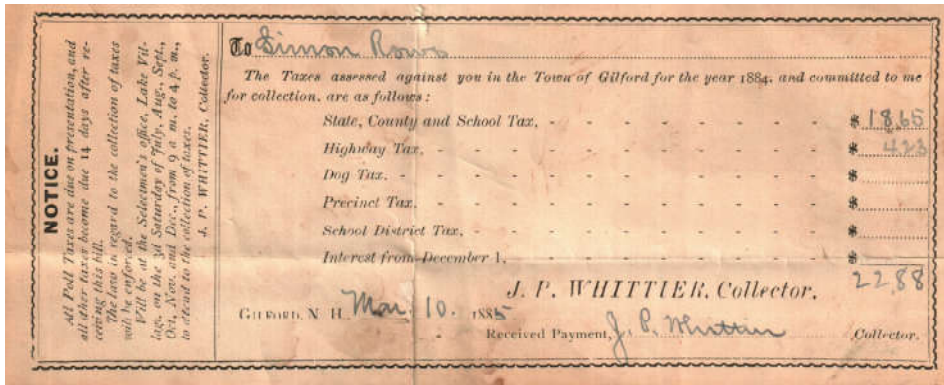 NOTICE.
All Poll Taxes are due on presentation, and
all other taxes become due 14 days after re-
ceiving this bill.
The law in regard to the collection of taxes
will be enforced.
Will be at the Selectmen's office, Lake Vil-
lage, on the 3d Saturday of July, Aug., Sept.,
Oct., Nov. and Dec., from 9 a. m. to 4 p. m.,
to attend to the collection of taxes.
J. P. WHITTIER, Collector.
To Simon Rowe
The Taxes assessed against you in the Town of Gilford for the year 1884, and committed to me
for collection, are as follows:
State, County and School Tax, - - - - - - - - - $ 18.65
Highway Tax, - - - - - - - - - - - - $ 4.23
Dog Tax, - - - - - - - - - - - - - $
Precinct Tax, - - - - - - - - - - - - $
School District Tax, - - - - - - - - - - $
Interest from December 1, - - - - - - - - - $
22.88
J. P. WHITTIER, Collector.
GILFORD, N. H. Mar. 10. 1885
Received Payment, J. P. Whittier Collector.